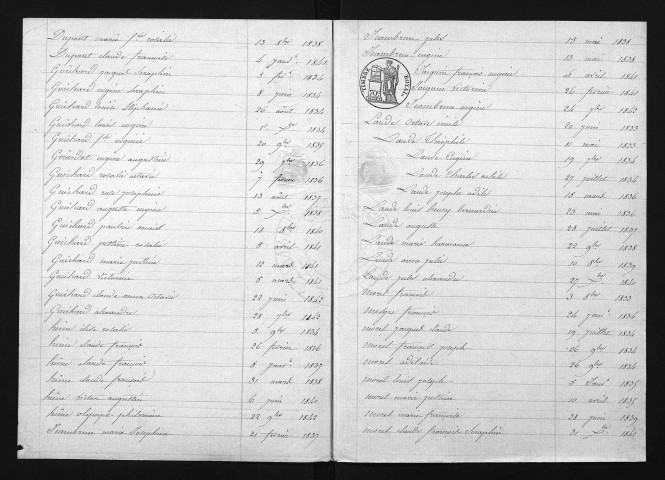 Dupont marie fse rosalie 13 8bre 1838
Dupont claude françois 4 janv. 1841
Guichard jacques Seraphin 5 fév. 1834
Guichard eugene Seraphin 8 juin 1834
Guichard louise Stephanie 26 août 1834
Guichard louis eugène 1er Xbre 1834
Guichard fse virginie 20 9bre 1835
Guichard eugene augustine 29 1836
Guichard rosalie 7 février 1836
Guichard rose josephine 13 août 1837
Guichard auguste eugene 5 Xbre 1838
Guichard pauline anais 18 8bre 1840
Guichard justine rosalie 8 avril 1841
Guichard marie justine 12 mars 1841
Guichard Victorine 6 mars 1841
Guichard claude octavie 22 juin 1842
Guichard alexandre 28 7bre 1842
hême elise rosalie 3 9bre 1834
hême claude françois 26 février 1836
hême claude françois 8 janv. 1837
hême claude françois 31 mars 1838
hême victor augustin 6 juin 1840
hême olympe philomène 22 9bre 1842
Jeambrun marie Josephine 21 février 1837
Jeambrun jules 13 mai 1838
Jeambrun eugène 13 mai 1838
Jacquin françois eugene 4 avril 1841
Jacquin victorine 26 février 1841
Jeambrun eugène 24 7bre 1842
TIMBRE ROYAL
70
Laude octave emile 20 juin 1833
Laude Théophile 11 mai 1833
Laude Eugène 19 7bre 1834
Laude Charles achile 27 juillet 1834
Laude joseph adile 18 mars 1836
Laude louis henry bernardin 23 mai 1836
Laude auguste 28 juillet 1837
Laude marie hermance 22 9bre 1838
Laude anna julie 10 8bre 1839
Laude jules alexandre 27 Xbre 1840
morel françois 3 8bre 1833
françois 24 janv. 1834
morel jacques claude 19 juillet 1834
morel françois joseph 26 9bre 1834
morel adelaide 26 9bre 1834
morel louis joseph 5 Janv. 1835
morel marie justine 10 avril 1835
morel marie françoise 28 juin 1839
morel claude françois Seraphin 31 Xbre 1841